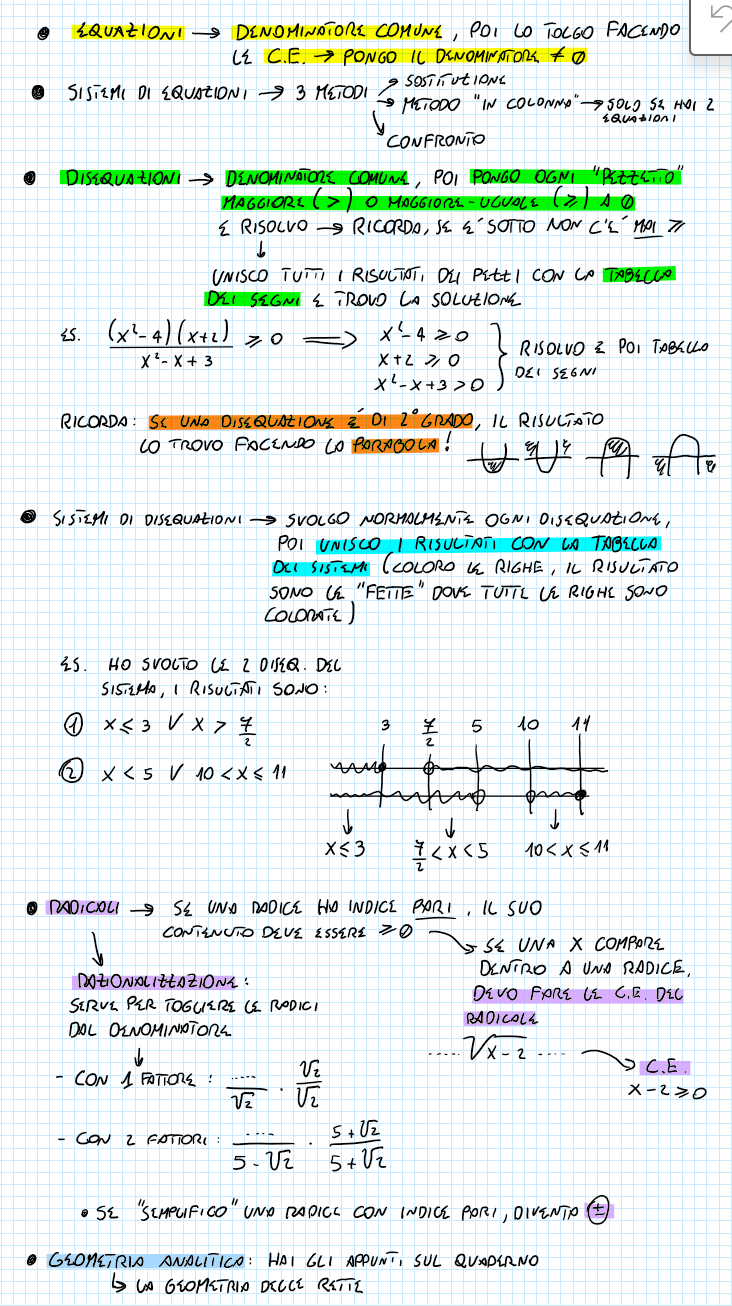 • EQUAZIONI → DENOMINATORE COMUNE, POI LO TOLGO FACENDO
LE C.E. → PONGO IL DENOMINATORE ≠ 0
• SISTEMI DI EQUAZIONI → 3 METODI
→ SOSTITUZIONE
→ METODO "IN COLONNA" → SOLO SE HAI 2
EQUAZIONI
→ CONFRONTO
• DISEQUAZIONI → DENOMINATORE COMUNE, POI PONGO OGNI "PEZZETTO"
MAGGIORE (>) O MAGGIORE-UGUALE (≥) A 0
E RISOLVO → RICORDA, SE E' SOTTO NON C'E' MAI ≥
↓
UNISCO TUTTI I RISULTATI DEI PEZZI CON LA TABELLA
DEI SEGNI E TROVO LA SOLUZIONE
ES. (x²-4)(x+2) / x²-x+3 ≥ 0 ⟹ x²-4 ≥ 0
x+2 ≥ 0
x²-x+3 > 0
} RISOLVO E POI TABELLA
DEI SEGNI
RICORDA: SE UNA DISEQUAZIONE E' DI 2° GRADO, IL RISULTATO
LO TROVO FACENDO LA PARABOLA!
• SISTEMI DI DISEQUAZIONI → SVOLGO NORMALMENTE OGNI DISEQUAZIONE,
POI UNISCO I RISULTATI CON LA TABELLA
DEI SISTEMI (COLORO LE RIGHE, IL RISULTATO
SONO LE "FETTE" DOVE TUTTE LE RIGHE SONO
COLORATE)
ES. HO SVOLTO LE 2 DISEQ. DEL
SISTEMA, I RISULTATI SONO:
① x ≤ 3 V x > 7/2
② x < 5 V 10 < x ≤ 11
3 7/2 5 10 11
x ≤ 3 7/2 < x < 5 10 < x ≤ 11
• RADICALI → SE UNA RADICE HA INDICE PARI, IL SUO
CONTENUTO DEVE ESSERE ≥ 0
→ SE UNA X COMPARE
DENTRO A UNA RADICE,
DEVO FARE LE C.E. DEL
RADICALE
..... √x-2 .....
→ C.E.
x-2 ≥ 0
RAZIONALIZZAZIONE:
SERVE PER TOGLIERE LE RADICI
DAL DENOMINATORE
- CON 1 FATTORE: ..... / √2 · √2 / √2
- CON 2 FATTORI: ..... / 5-√2 · 5+√2 / 5+√2
• SE "SEMPLIFICO" UNA RADICE CON INDICE PARI, DIVENTA ±
• GEOMETRIA ANALITICA: HAI GLI APPUNTI SUL QUADERNO
↳ LA GEOMETRIA DELLE RETTE